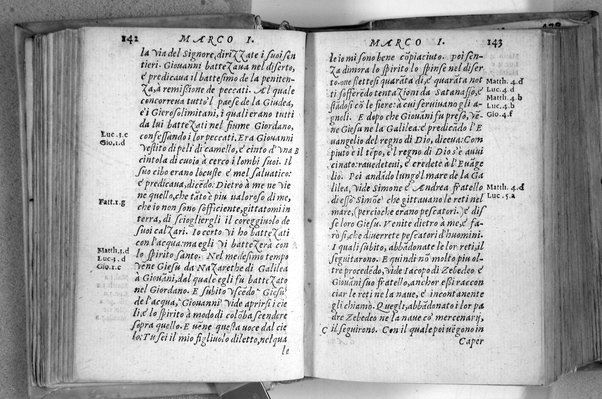 142 MARCO I.
la via del Signore, dirizzate i suoi sen
tieri. Giovanni battezaua nel diserto,
e predicaua il battesimo de la peniten
za, à remisione de peccati. Al quale
concorreua tutto'l paese de la Giudea,
e i Gierosolimitani, i quali erano tutti
da lui battezati nel fiume Giordano,
confessando i lor peccati. Era Giouanni
Luc. 3.c
Gio. 1.d
vestito di peli di camello, e cinto d'vna B
cintola di cuoio à cerco i lombi suoi. Il
suo cibo erano locuste e mel saluatico:
e predicaua, dicẽdo: Dietro à me ne vie
ne quello, che tãto è piu ualoroso di me,
Fatt. 1.g
che io non sono sofficiente, gittatomi in
terra, di sciogliergli il coreggiuolo de
suoi calzari. Io certo vi ho battezati
con l'acqua: ma egli vi battezerà con
lo spirito santo. Nel medesimo tempo
Matth. 3.d
Luc. 4.d
Gio. 1.c
vene Giesu da Nazarethe di Galilea
à Giouãni, dal quale egli fu battezato
nel Giordano. E subito vscẽdo Giesu
de l'acqua, Giouanni vide aprirsi i cie
li, e lo spirito à modo di colõba scendere
sopra quello. E uẽne questa voce dal cie
lo: Tu sei il mio figliuolo diletto, nel qua
le
MARCO I. 143
le io mi sono bene cõpiaciuto. poi sen-
za dimora lo spirito lo spinse nel diser
to. one stettesi quarãta dì, e quarãta not
Matth. 4.d
Luc. 4.d
ti sofferẽdo tentazioni da Satanasso, e
Matth. 4.b
stãdosi cõ le fiere: à cui seruiuano gli a
Luc. 4.b
gnoli. E dopo che Giouãni fu preso, vẽ-
Gio. 4.f
ne Giesu ne la Galilea: e predicãdo l'E
uangelio del regno di Dio, diceua: Com
piuto è il tẽpo, e'l regno di Dio s'è aui
cinato: rauedeteui, e credete à l'Euãge
lio. Poi andãdo lungo'l mare de la Ga
lilea, vide Simone e Andrea fratello
Matth. 4.d
Luc. 5.a
d'esso Simõe che gittauano le reti nel
mare, (percioche erano pescatori.) e dis
se loro Giesu. Venite dietro à me, e fa-
rò sì, che diuerrete pescatori d'huomini.
I quali subito, abbãdonate le lor reti, il
seguitarono. E quindi nõ molto piu ol
tre procededo, vide Iacopo di Zebedeo e
Giouãni suo fratello, anchor essi raccon
ciar le reti ne la naue, e incontanente
gli chiamò. Quegli, abbãdonato il lor pa
dre Zebedeo ne la naue co' mercenarij,
C il seguirono. Con il quale poi uẽgono in
Caper